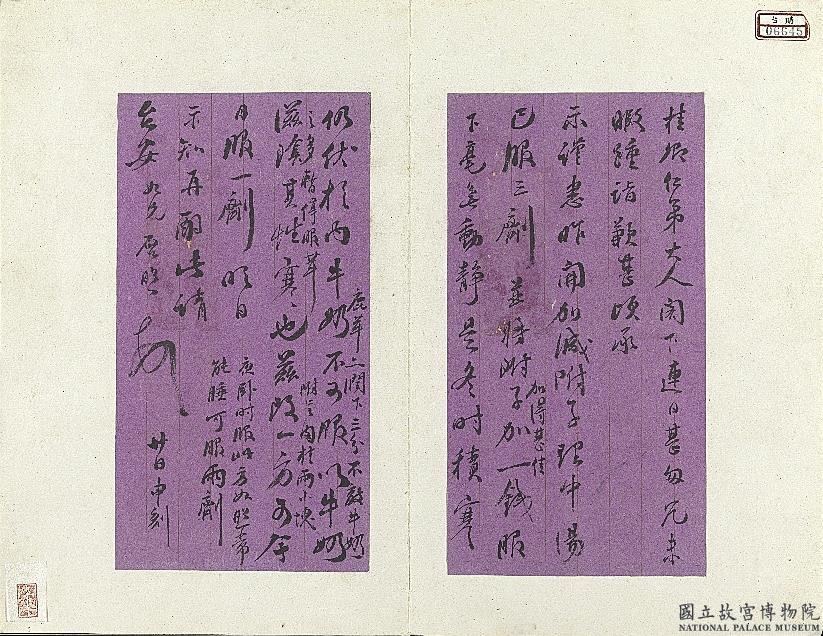 桂卿仁弟大人閣下連日甚匆冗未
暇踵詣歉甚頃承
示謹悉昨開加減附子理中湯
已服三劑並將附子加一錢服
加得甚佳
下毫無動靜是冬時積寒
仍伏於內牛奶不可服以牛奶
鹿茸二潤下三分不敵牛奶
之多暫停服茸
附子肉桂兩小塊
滋陰其性寒也茲改一方可今
日服一劑明日
夜臥時服此方如照常
能睡可服兩劑
示知再酌此請
台安 如兄 照
廿日申刻
06645
國立故宮博物院
NATIONAL PALACE MUSEUM